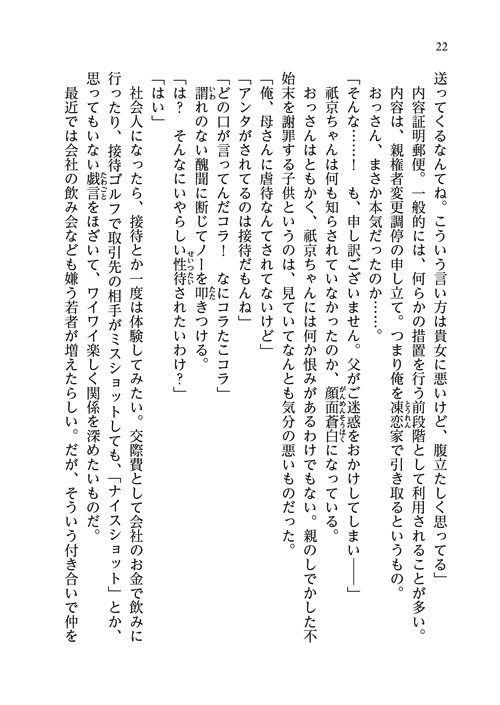 22
送ってくるなんてね。こういう言い方は貴女に悪いけど、腹立たしく思ってる」
内容証明郵便。一般的には、何らかの措置を行う前段階として利用されることが多い。
内容は、親権者変更調停の申し立て。つまり俺を凍恋家で引き取るというもの。
おっさん、まさか本気だったのか……。
「そんな……！　も、申し訳ございません。父がご迷惑をおかけしてしまい――」
祇京ちゃんは何も知らされていなかったのか、顔面蒼白になっている。
おっさんはともかく、祇京ちゃんには何か恨みがあるわけでもない。親のしでかした不
始末を謝罪する子供というのは、見ていてなんとも気分の悪いものだった。
「俺、母さんに虐待なんてされてないけど」
「アンタがされてるのは接待だもんね」
「どの口が言ってんだコラ！　なにコラたこコラ」
謂れのない醜聞に断じてノーを叩きつける。
「は？　そんなにいやらしい性待されたいわけ？」
「はい」
社会人になったら、接待とか一度は体験してみたい。交際費として会社のお金で飲みに
行ったり、接待ゴルフで取引先の相手がミスショットしても、「ナイスショット」とか、
思ってもいない戯言をほざいて、ワイワイ楽しく関係を深めたいものだ。
最近では会社の飲み会なども嫌う若者が増えたらしい。だが、そういう付き合いで仲を